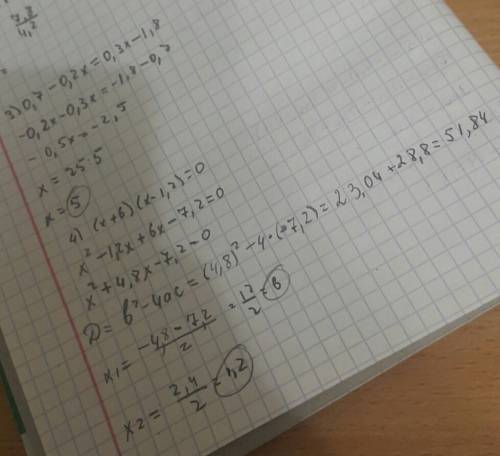 7,8
4,2
3) 0,7 - 0,2x = 0,3x - 1,8
-0,2x - 0,3x = -1,8 - 0,7
-0,5x = -2,5
x = 25:5
x = 5
4) (x+6)(x-1,2)=0
x² - 1,2x + 6x - 7,2 = 0
x² + 4,8x - 7,2 = 0
D = b² - 4ac = (4,8)² - 4·(-7,2) = 23,04 + 28,8 = 51,84
x1 = -4,8 - 7,2 / 2 = 12/2 = 6
x2 = 2,4/2 = 1,2